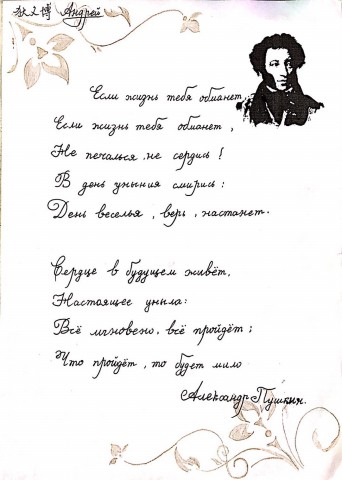 狄文博 Андрей
Если жизнь тебя обманет
Если жизнь тебя обманет,
Не печалься, не сердись!
В день уныния смирись:
День веселья, верь, настанет.
Сердце в будущем живёт,
Настоящее уныла:
Всё мгновено, всё пройдёт;
Что пройдёт, то будет мило
Александр Пушкин.